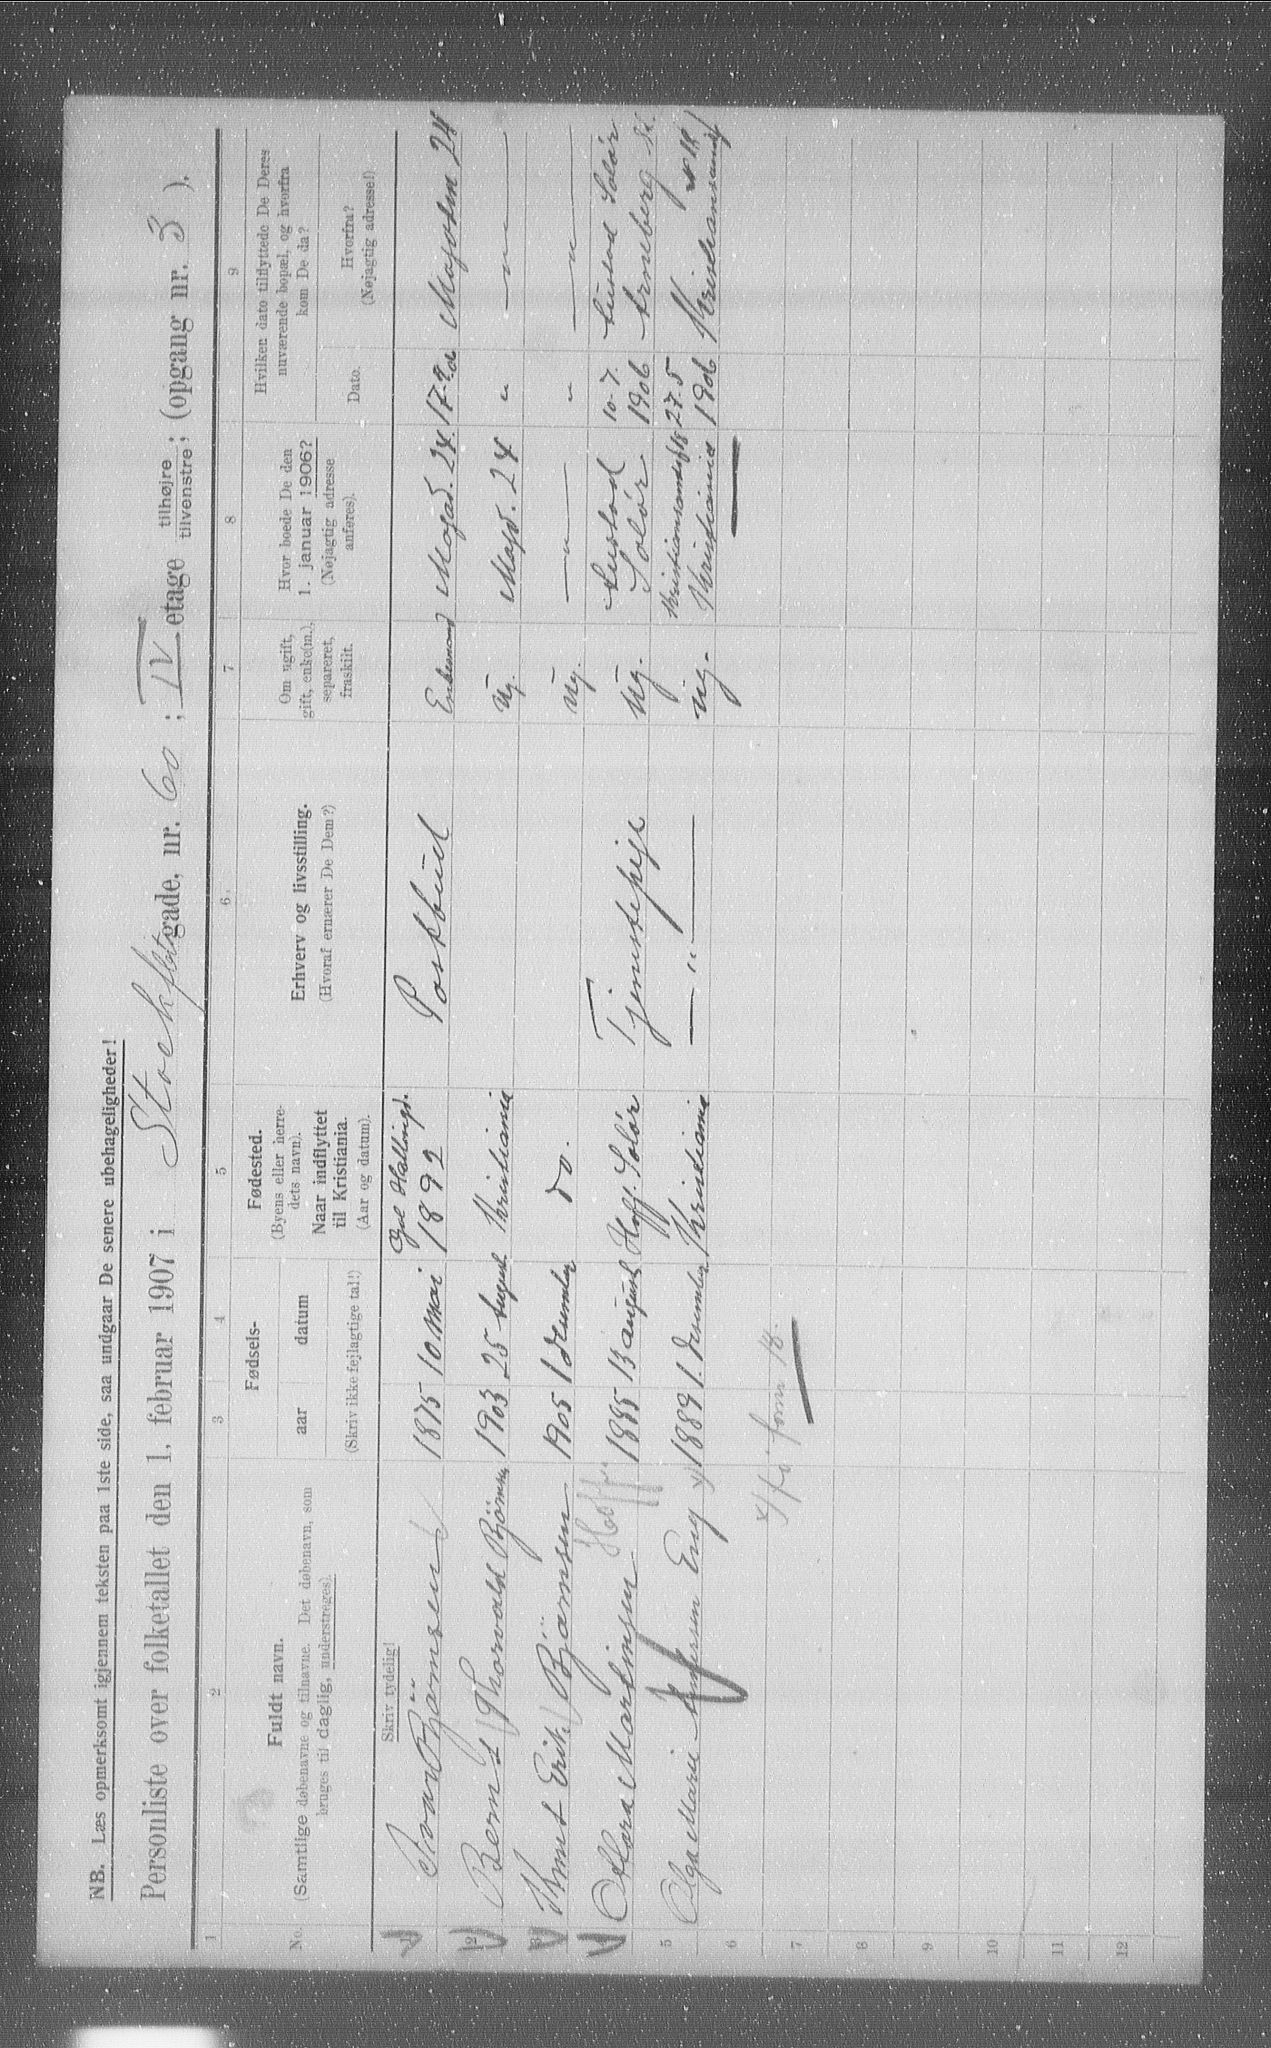 NB. Læs opmerksomt igjennem teksten paa 1ste side, saa undgaar De senere ubehageligheder!
Personliste over folketallet den 1. februar 1907 i Stockflet gade, nr. 60 ; IV etage tilhøjre tilvenstre; (opgang nr. 3 ).
1 2 3 4 5 6 7 8 9
No.
Fuldt navn.
(Samtlige døbenavne og tilnavne. Det døbenavn, som
bruges til daglig, understreges).
Fødsels-
aar datum
(Skriv ikke fejlagtige tal!)
Fødested.
(Byens eller herre-
dets navn).
Naar indflyttet
til Kristiania.
(Aar og datum).
Erhverv og livsstilling.
(Hvoraf ernærer De Dem?)
Om ugift,
gift, enke(m.),
separeret,
fraskilt.
Hvor boede De den
1. januar 1906?
(Nøjagtig adresse
anføres).
Hvilken dato tilflyttede De Deres
nuværende bopæl, og hvorfra
kom De da?
Dato.
Hvorfra?
(Nøjagtig adresse!)
Skriv tydelig!
1 Ivar Bjørnsen 1875 10 Mai Gol Hallingd. 1892 Postbud Enkemand 24
2 Bernt Thorvald 1903 25 August Kristiania Ug. 24 "
3 Knut Erik Bjørnsen 1905 1 December do. Ug. — " — " — " —
4 Martinsen Hoff 1885 13 august Hoff. Solør Tjenestepige Ug. Solør 10-7 1906 Solør Arneberg
5 Olga Marie Andersen Eng x) 1889 1. December Kristiania — " — Ug. Kristiania 27.5 1906 Kristiansand
6
x) form 18.
7
8
9
10
11
12